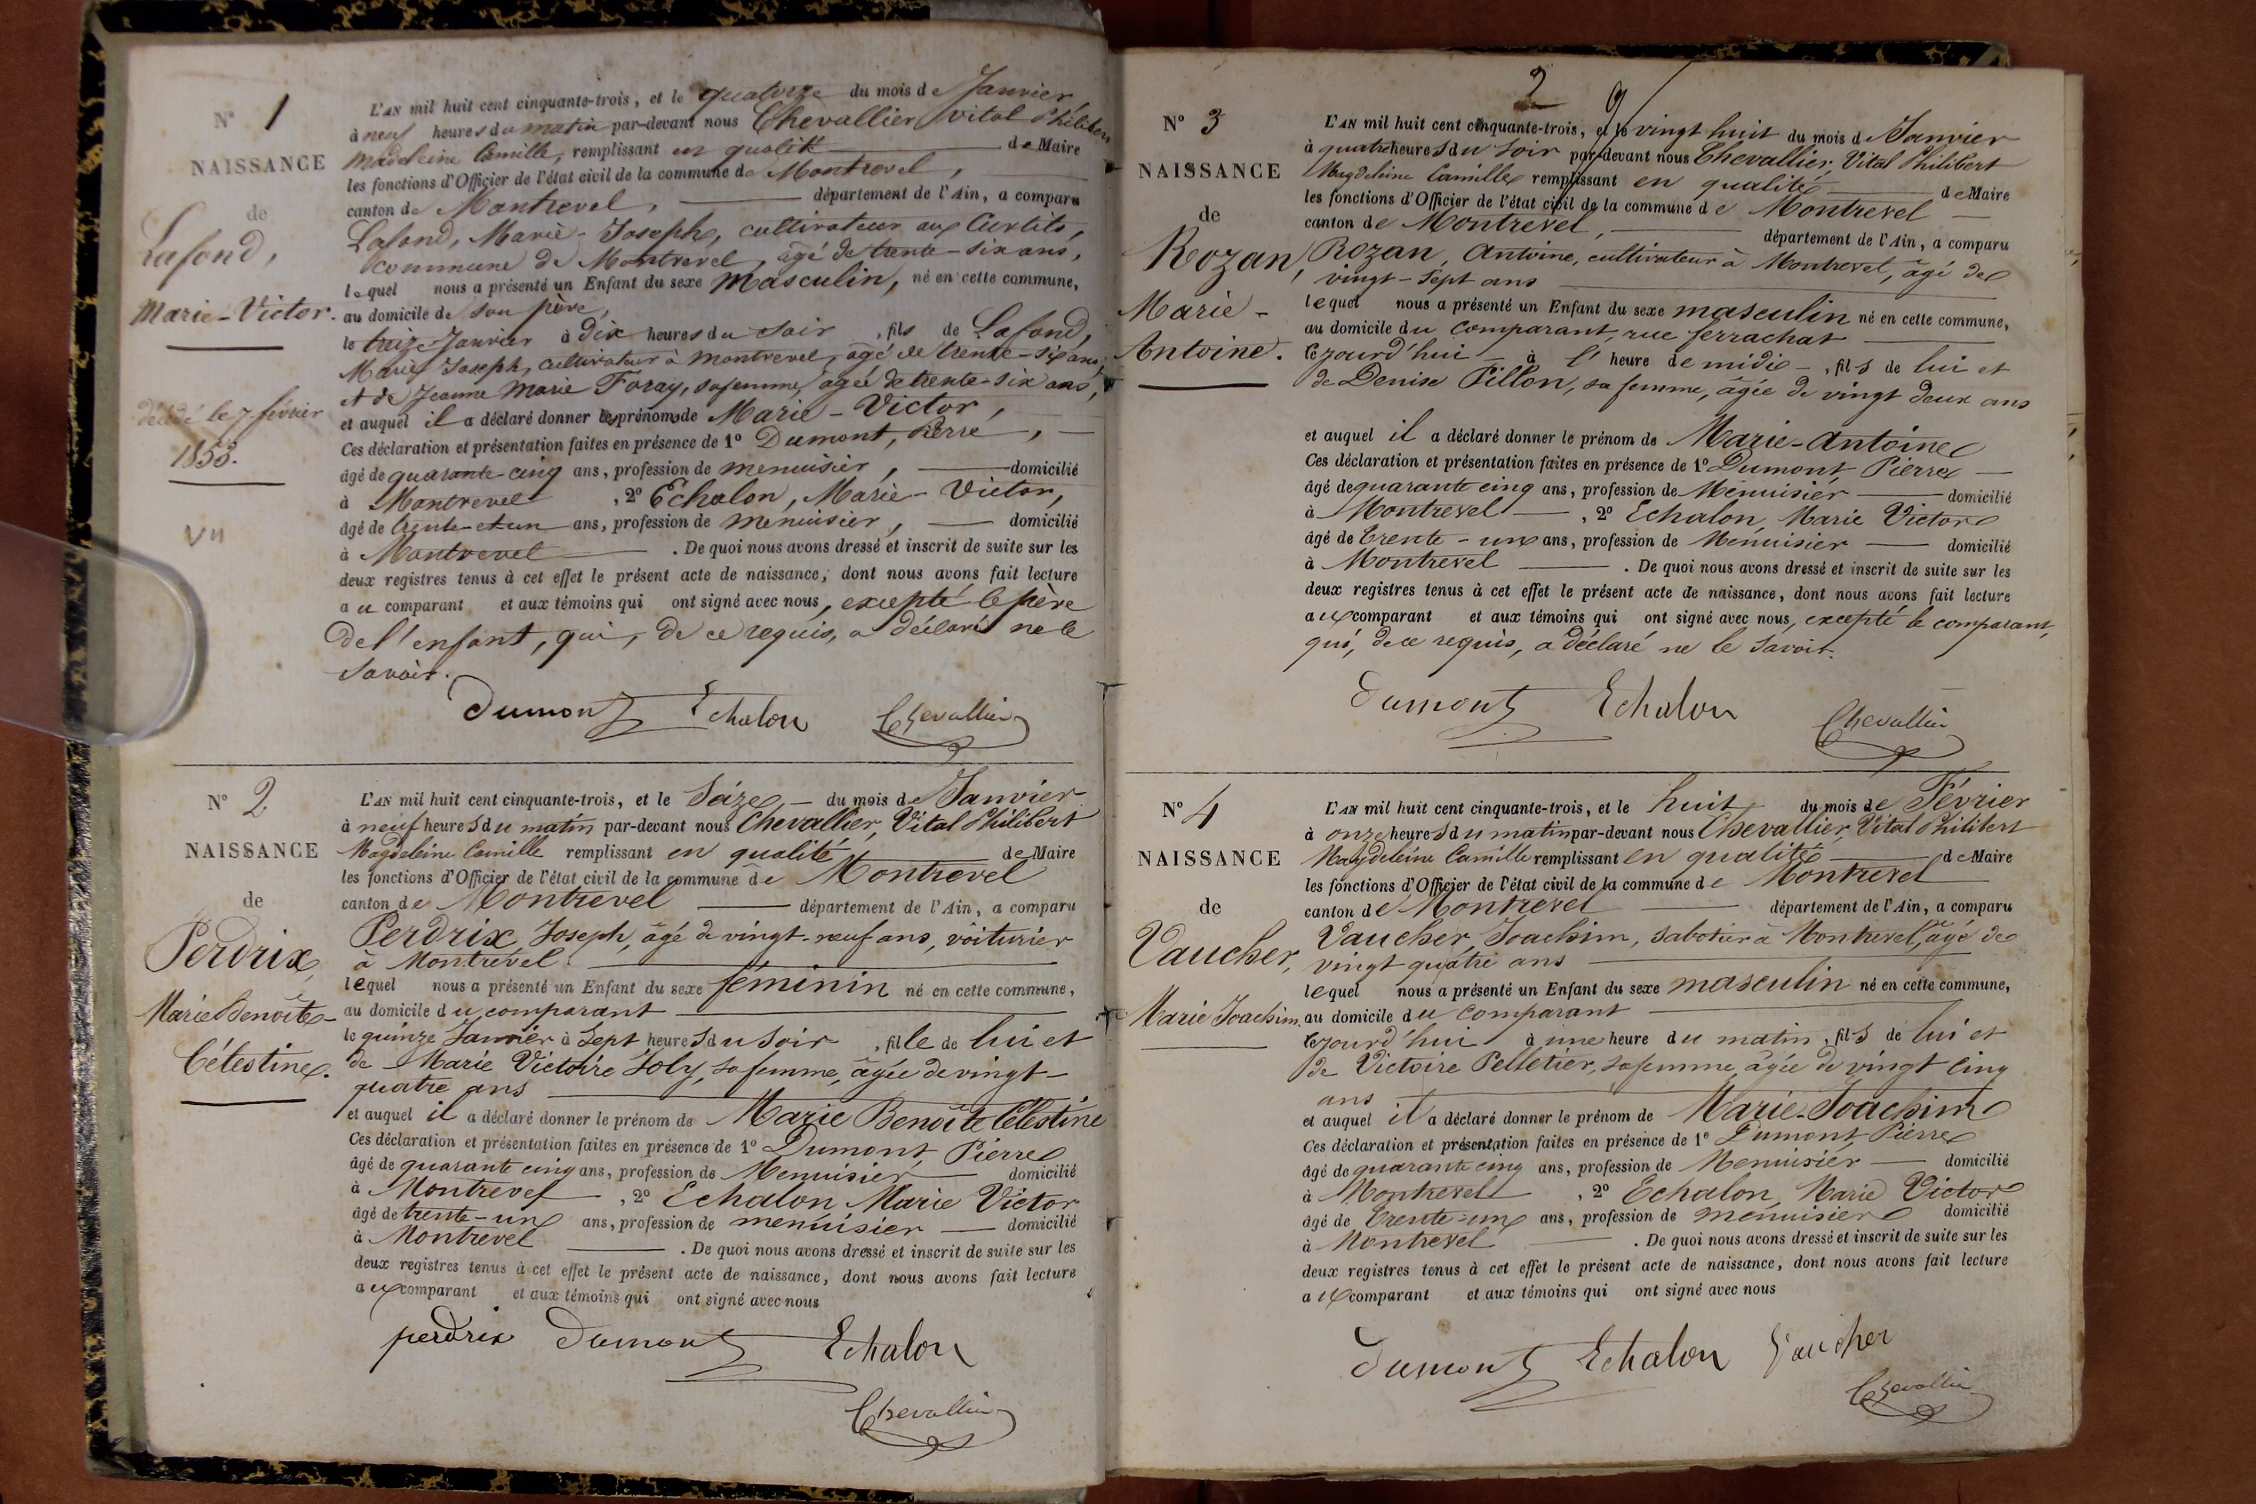 N° 1
NAISSANCE
de
Lafond,
Marie-Victor.
décédé le 7 février
1853.
L'AN mil huit cent cinquante-trois, et le quatorze du mois de Janvier
à neuf heures du matin par-devant nous Chevallier, vital Philibert
Madeleine Camille, remplissant en qualité de Maire
les fonctions d'Officier de l'état civil de la commune de Montrevel,
canton de Montrevel, département de l'Ain, a comparu
Lafond, Marie-Joseph, cultivateur aux Curtils,
commune de Montrevel, âgé de trente-six ans,
lequel nous a présenté un Enfant du sexe masculin, né en cette commune,
au domicile de son père,
le treize Janvier à dix heures du soir, fils de Lafond,
Marie Joseph, cultivateur à Montrevel, âgé de trente-six ans,
et de Jeanne Marie Foray, sa femme, âgée de trente-six ans,
et auquel il a déclaré donner les prénoms de Marie-Victor,
Ces déclaration et présentation faites en présence de 1° Dumont, Pierre,
âgé de quarante-cinq ans, profession de menuisier, domicilié
à Montrevel, 2° Echalon, Marie-Victor,
âgé de trente-et-un ans, profession de menuisier, domicilié
à Montrevel. De quoi nous avons dressé et inscrit de suite sur les
deux registres tenus à cet effet le présent acte de naissance, dont nous avons fait lecture
au comparant et aux témoins qui ont signé avec nous, excepté le père
de l'enfant, qui, de ce requis, a déclaré ne le
savoir.
Dumont Echalon Chevallier
N° 2
NAISSANCE
de
Perdrix,
Marie Benoîte
Célestine.
L'AN mil huit cent cinquante-trois, et le Seize du mois de Janvier
à neuf heures du matin par-devant nous Chevallier, Vital Philibert
Magdeleine Camille remplissant en qualité de Maire
les fonctions d'Officier de l'état civil de la commune de Montrevel
canton de Montrevel département de l'Ain, a comparu
Perdrix, Joseph, âgé de vingt-neuf ans, voiturier
à Montrevel
lequel nous a présenté un Enfant du sexe féminin né en cette commune,
au domicile du comparant
le quinze Janvier à Sept heures du soir, fille de lui et
de Marie Victoire Joly, sa femme, âgée de vingt-
quatre ans
et auquel il a déclaré donner le prénom de Marie Benoîte Célestine
Ces déclaration et présentation faites en présence de 1° Dumont, Pierre
âgé de quarante cinq ans, profession de Menuisier domicilié
à Montrevel, 2° Echalon Marie Victor
âgé de trente-un ans, profession de menuisier domicilié
à Montrevel. De quoi nous avons dressé et inscrit de suite sur les
deux registres tenus à cet effet le présent acte de naissance, dont nous avons fait lecture
aux comparant et aux témoins qui ont signé avec nous
perdrix Dumont Echalon
Chevallier
2 9
N° 3
NAISSANCE
de
Rozan,
Marie-
Antoine.
L'AN mil huit cent cinquante-trois, et le vingt huit du mois d Janvier
à quatre heures du soir par-devant nous Chevallier, Vital Philibert
Magdeleine Camille remplissant en qualité de Maire
les fonctions d'Officier de l'état civil de la commune de Montrevel
canton de Montrevel, département de l'Ain, a comparu
Rozan, Antoine, cultivateur à Montrevel, âgé de
vingt-sept ans
lequel nous a présenté un Enfant du sexe masculin né en cette commune,
au domicile du comparant, rue ferrachat
cejourd'hui à l'heure de midi, fils de lui et
de Denise Pillon, sa femme, âgée de vingt deux ans
et auquel il a déclaré donner le prénom de Marie-Antoine
Ces déclaration et présentation faites en présence de 1° Dumont, Pierre
âgé de quarante cinq ans, profession de Menuisier domicilié
à Montrevel, 2° Echalon, Marie Victor
âgé de trente-un ans, profession de Menuisier domicilié
à Montrevel. De quoi nous avons dressé et inscrit de suite sur les
deux registres tenus à cet effet le présent acte de naissance, dont nous avons fait lecture
aux comparant et aux témoins qui ont signé avec nous, excepté le comparant,
qui, de ce requis, a déclaré ne le savoir.
Dumont Echalon Chevallier
N° 4
NAISSANCE
de
Vaucher,
Marie Joachim.
L'AN mil huit cent cinquante-trois, et le huit du mois de Février
à onze heures du matin par-devant nous Chevallier, Vital Philibert
Magdeleine Camille remplissant en qualité de Maire
les fonctions d'Officier de l'état civil de la commune de Montrevel
canton de Montrevel département de l'Ain, a comparu
Vaucher, Joachim, sabotier à Montrevel, âgé de
vingt quatre ans
lequel nous a présenté un Enfant du sexe masculin né en cette commune,
au domicile du comparant
cejourd'hui à une heure du matin, fils de lui et
de Victoire Pelletier, sa femme, âgée de vingt cinq
ans
et auquel il a déclaré donner le prénom de Marie-Joachim
Ces déclaration et présentation faites en présence de 1° Dumont, Pierre
âgé de quarante cinq ans, profession de Menuisier domicilié
à Montrevel, 2° Echalon, Marie Victor
âgé de trente-un ans, profession de menuisier domicilié
à Montrevel. De quoi nous avons dressé et inscrit de suite sur les
deux registres tenus à cet effet le présent acte de naissance, dont nous avons fait lecture
aux comparant et aux témoins qui ont signé avec nous
Dumont Echalon Vaucher
Chevallier